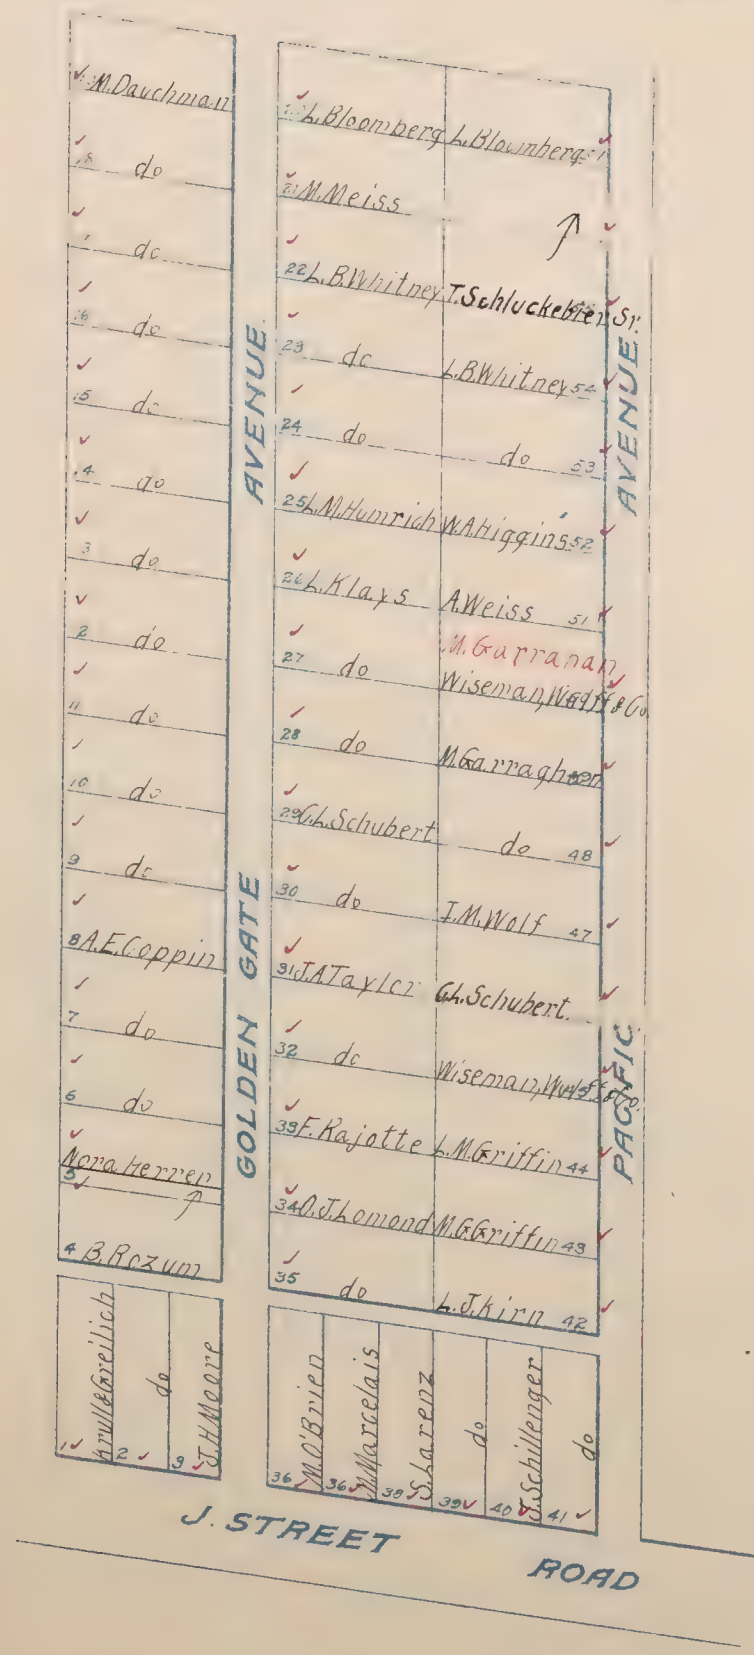 M. Dauchman
do
do
do
15 do
14 do
3 do
2 do
11 do
10 do
9 do
8 A.E. Coppin
7 do
6 do
Nora Herren
5
4 B. Rozum
Krull & Greilich 1
do 2
J.H. Moore 3
GOLDEN GATE AVENUE.
L. Bloomberg
21 M. Meiss
22 L.B. Whitney
23 do
24 do
25 L.M. Humrich
26 L. Klays
27 do
28 do
29 C.L. Schubert
30 do
31 J.A. Tayler
32 do
33 F. Rajotte
34 O.J. Lomond
35 do
L. Bloomberg
T. Schluckebier, Sr.
L.B. Whitney 54
do 53
W.A. Higgins 52
A. Weiss 51
M. Garranan
Wiseman, Wolff & Co.
M. Garraghan
do 48
I.M. Wolf 47
C.L. Schubert
Wiseman, Wolff & Co.
L.M. Griffin 44
M.G. Griffin 43
L.J. Kirn 42
M. O'Brien 36
M. Marcelais 36
S. Larenz 38
do 39
J. Schillenger 40
do 41
PACIFIC AVENUE
J. STREET ROAD